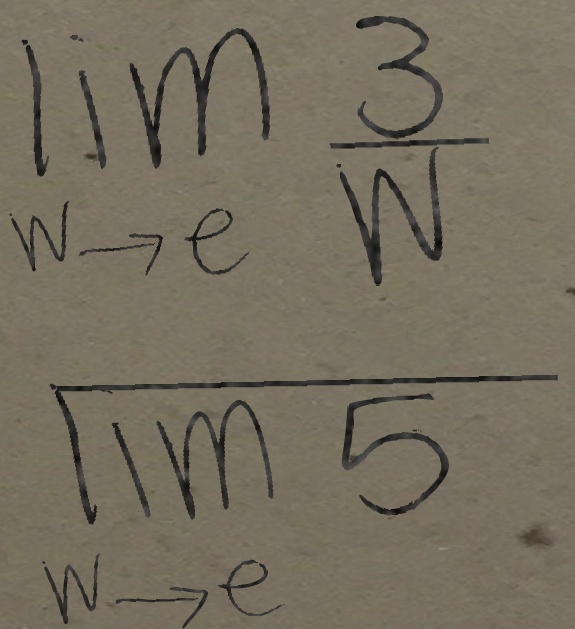 \frac{\lim_{w \to e} \frac{3}{w}}{\lim_{w \to e} 5}